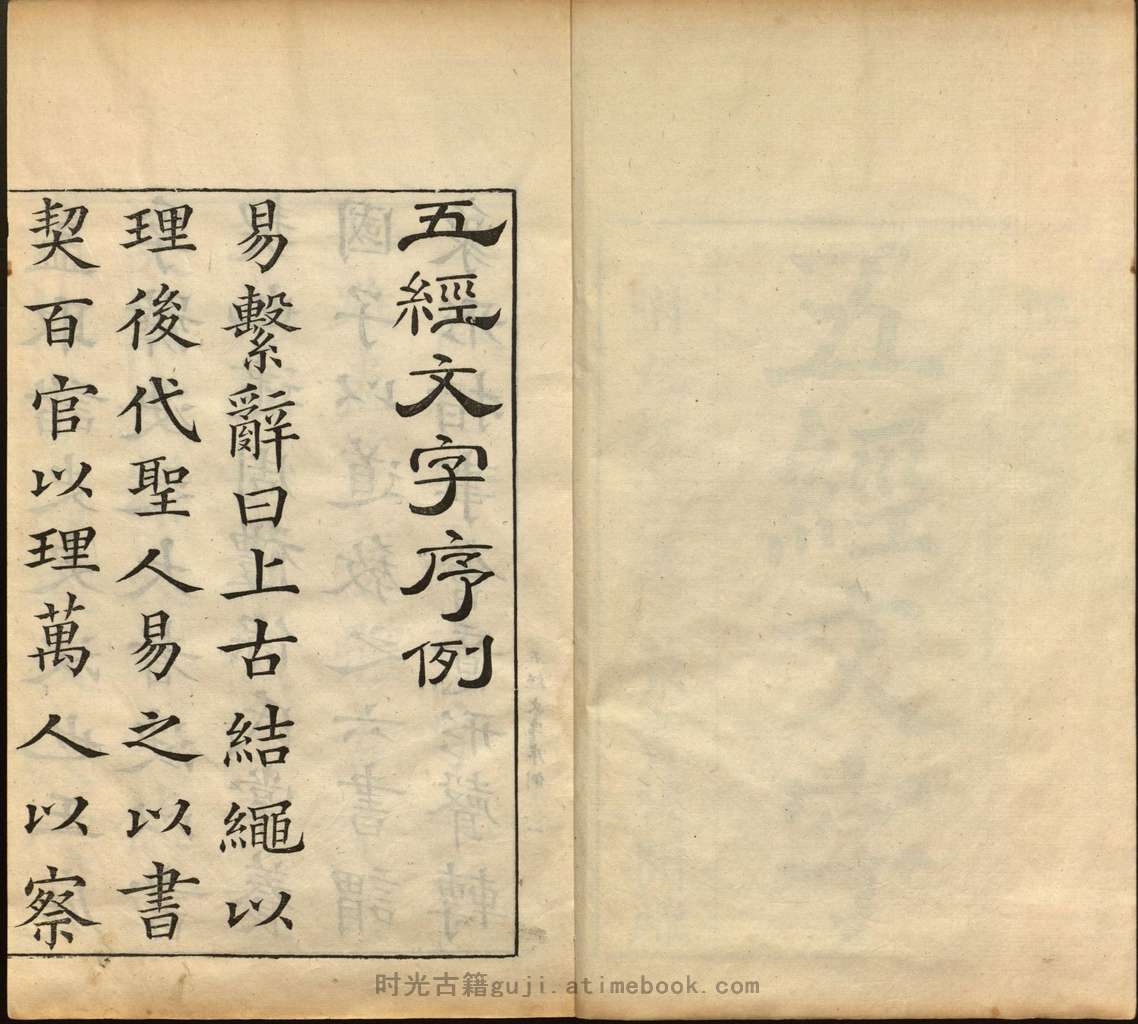 五經文字序例
易繫辭曰上古結繩以
理後代聖人易之以書
契百官以理萬人以察
时光古籍guji.atimebook.com